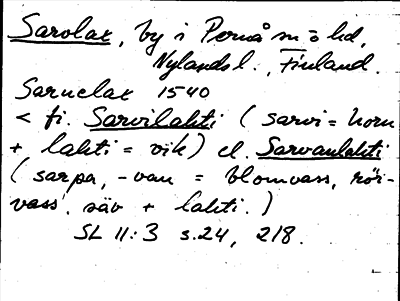 Sarolax, by i Pernå m o hd,
Nylands l., Finland.
Saruelax 1540
< fi. Sarvilahti (sarvi = horn
+ lahti = vik) el. Sarvanlahti
(sarpa, -van = blomvass, rör-
vass, säv + lahti.)
SL 11:3 s.24, 218.